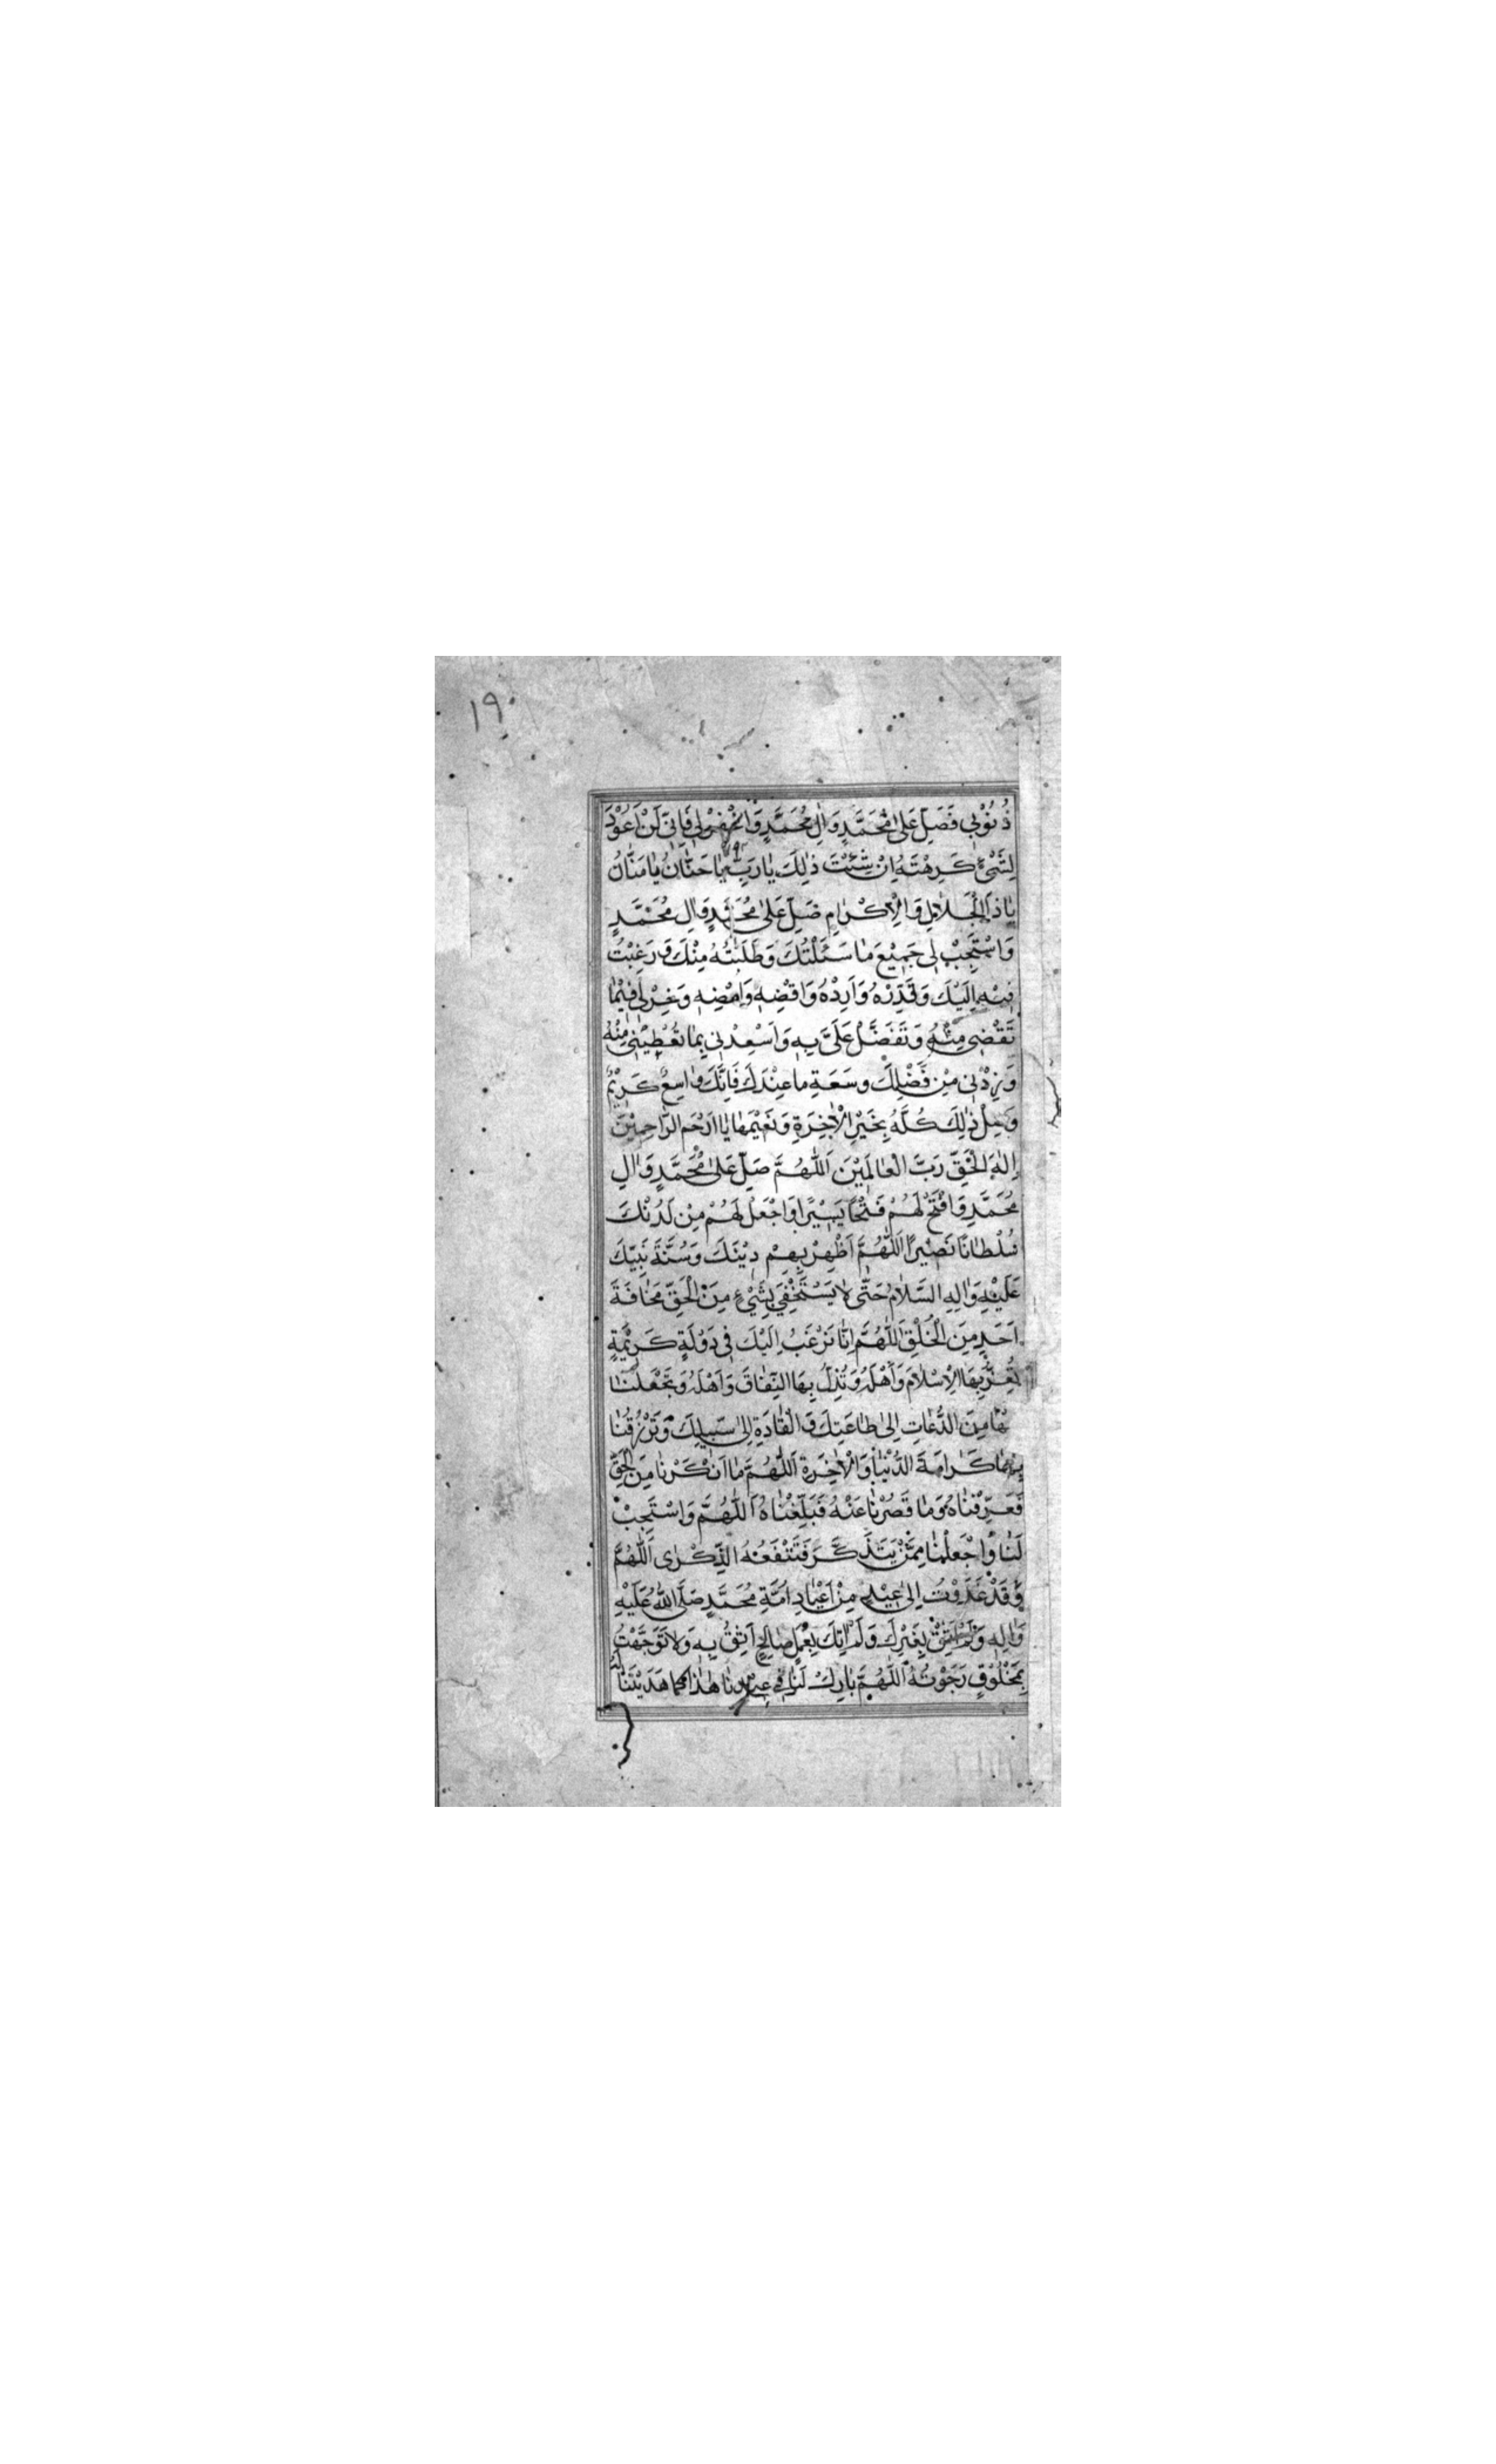 ١٩٠
ذُنُوْبِي فَصَلِّ عَلىٰ مُحَمَّدٍ وَاٰلِ مُحَمَّدٍ وَاغْفِرْلِي فَاِنِّي لَنْ اَعُوْدَ
لِشَيْءٍ كَرِهْتَهُ اِنْ شِئْتَ ذٰلِكَ يٰا رَبِّ يٰا حَنّٰانُ يٰا مَنّٰانُ
يٰا ذَا الْجَلاٰلِ وَالْاِكْرٰامِ صَلِّ عَلىٰ مُحَمَّدٍ وَاٰلِ مُحَمَّدٍ
وَاسْتَجِبْ لِي جَمِيْعَ مٰا سَئَلْتُكَ وَطَلَبْتُهُ مِنْكَ وَرَغِبْتُ
فِيْهِ اِلَيْكَ وَقَدِّرْهُ وَاَرِدْهُ وَاقْضِهِ وَامْضِهِ وَخِرْلِي فِيْمٰا
تَقْضِي مِنْهُ وَتَفَضَّلْ عَلَيَّ بِهِ وَاَسْعِدْنِي بِمٰا تُعْطِيْنِي مِنْهُ
وَزِدْنِي مِنْ فَضْلِكَ وسَعَةِ مٰا عِنْدَكَ فَاِنَّكَ وٰاسِعٌ كَرِيْمٌ
وَصِلْ ذٰلِكَ كُلَّهُ بِخَيْرِ الْاٰخِرَةِ وَنَعِيْمِهٰا يٰا اَرْحَمَ الرّٰاحِمِيْنَ
اِلٰهَ الْحَقِّ رَبَّ الْعٰالَمِيْنَ اَللّٰهُمَّ صَلِّ عَلىٰ مُحَمَّدٍ وَاٰلِ
مُحَمَّدٍ وَافْتَحْ لَهُمْ فَتْحًا يَسِيْرًا وَاجْعَلْ لَهُمْ مِنْ لَدُنْكَ
سُلْطٰانًا نَصِيْرًا اَللّٰهُمَّ اَظْهِرْ بِهِمْ دِيْنَكَ وَسُنَّةَ نَبِيِّكَ
عَلَيْهِ وَاٰلِهِ السَّلاٰمُ حَتّٰى لاٰ يَسْتَخْفِيَ بِشَيْءٍ مِنَ الْحَقِّ مَخٰافَةَ
اَحَدٍ مِنَ الْخَلْقِ اَللّٰهُمَّ اِنّٰا نَرْغَبُ اِلَيْكَ فِي دَوْلَةٍ كَرِيْمَةٍ
تُعِزُّ بِهَا الْاِسْلاٰمَ وَاَهْلَهُ وَتُذِلُّ بِهَا النِّفٰاقَ وَاَهْلَهُ وَتَجْعَلُنٰا
مِنَ الدُّعٰاتِ اِلىٰ طٰاعَتِكَ وَالْقٰادَةِ اِلىٰ سَبِيْلِكَ وَتَرْزُقُنٰا
بِهٰا كَرٰامَةَ الدُّنْيٰا وَالْاٰخِرَةِ اَللّٰهُمَّ مٰا اَنْكَرْنٰا مِنَ الْحَقِّ
فَعَرِّفْنٰاهُ وَمٰا قَصُرْنٰا عَنْهُ فَبَلِّغْنٰاهُ اَللّٰهُمَّ وَاسْتَجِبْ
لَنٰا وَاجْعَلْنٰا مِمَّنْ يَتَذَكَّرُ فَتَنْفَعُهُ الذِّكْرٰى اَللّٰهُمَّ
وَقَدْ غَدَوْتُ اِلىٰ عِيْدٍ مِنْ اَعْيٰادِ اُمَّةِ مُحَمَّدٍ صَلَّى اللّٰهُ عَلَيْهِ
وَاٰلِهِ وَلَمْ اَثِقْ بِغَيْرِكَ وَلَمْ اٰتِكَ بِعَمَلٍ صٰالِحٍ اَثِقُ بِهِ وَلاٰ تَوَجَّهْتُ
بِمَخْلُوْقٍ رَجَوْتُهُ اَللّٰهُمَّ بٰارِكْ لَنٰا فِي عِيْدِنٰا هٰذٰا كَمٰا هَدَيْتَنٰا لَهُ